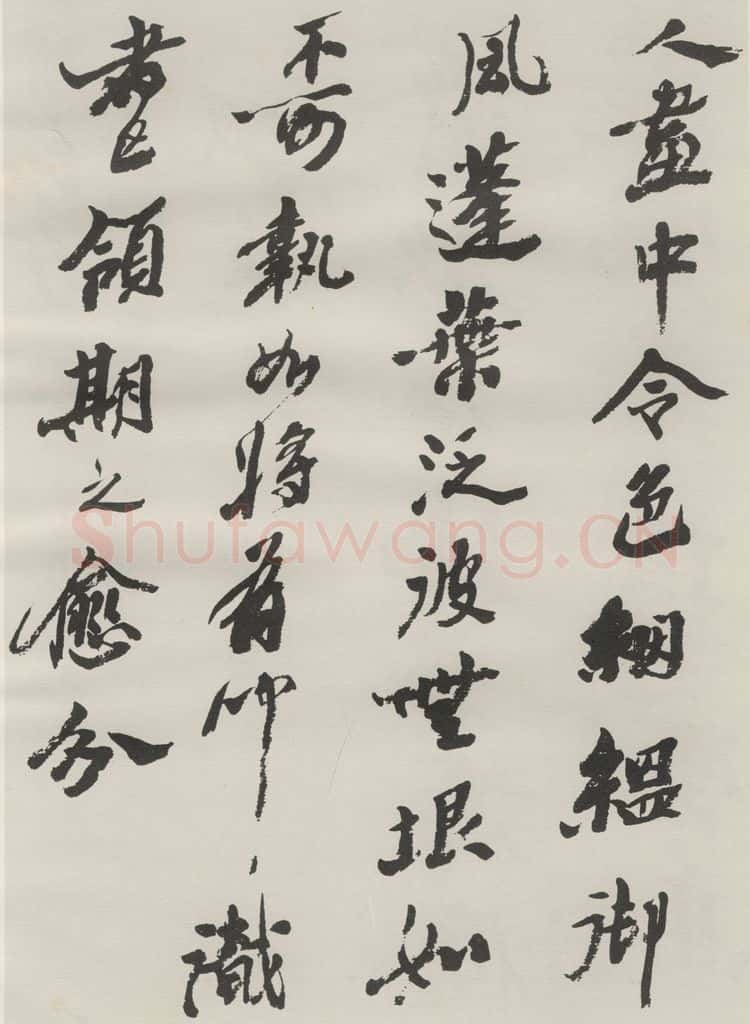 人畫中令色絪縕御
風蓬葉泛彼無垠如
不可執如將有聞識
者已領期之愈分
Shufawang.CN